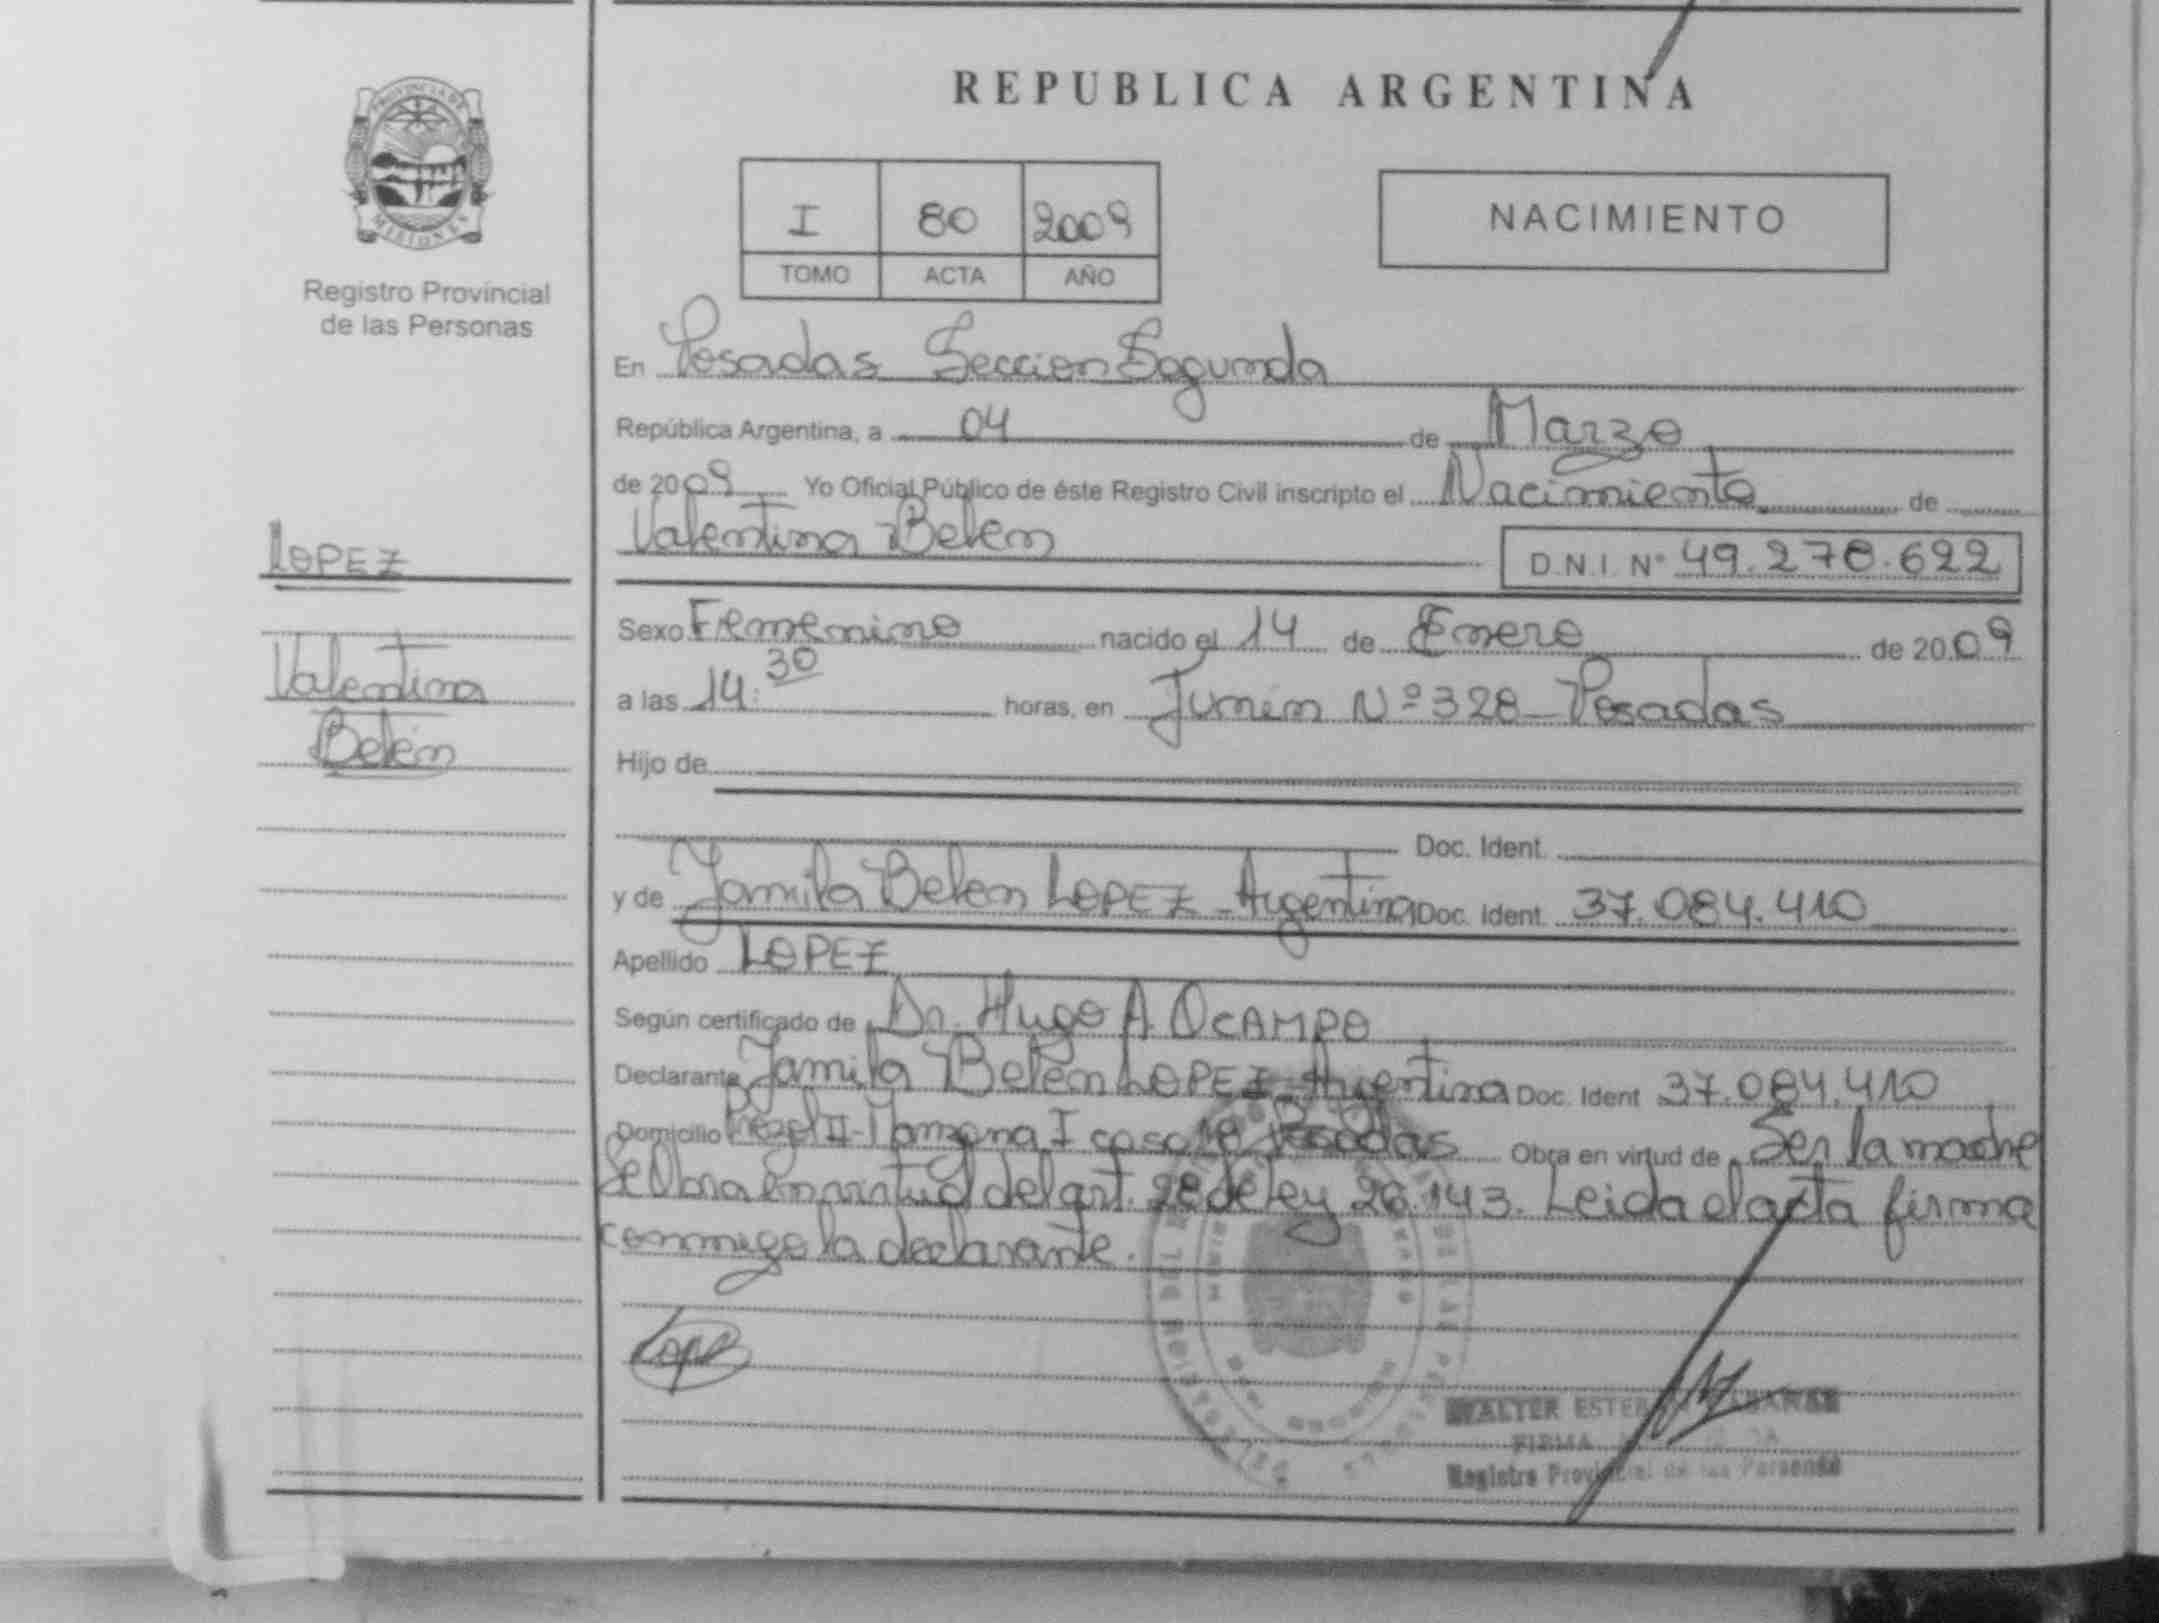 REPUBLICA ARGENTINA
PROVINCIA DE
MISIONES
Registro Provincial
de las Personas
I 80 2009
TOMO ACTA AÑO
NACIMIENTO
En Posadas Seccion Segunda
República Argentina, a 04 de Marzo
de 2009 Yo Oficial Público de éste Registro Civil inscripto el Nacimiento de
Valentina Belen
D.N.I. Nº 49.278.622
LOPEZ
Valentina
Belén
Sexo Femenino nacido el 14 de Enero de 2009
a las 14:30 horas, en Junín Nº 328 - Posadas
Hijo de
Doc. Ident.
y de Jamila Belen LOPEZ - Argentina Doc. Ident. 37.084.410
Apellido LOPEZ
Según certificado de Dr. Hugo A. OCAMPO
Declarante Jamila Belén LOPEZ - Argentina Doc. Ident 37.084.410
Domicilio II - Manzana I casa Posadas Obra en virtud de Ser la madre
Se labra en virtud del art. 28 de ley 26.143. Leida el acta firma
conmigo la declarante.
Lopez
WALTER
FIRMA
Registro Provincial de las Personas